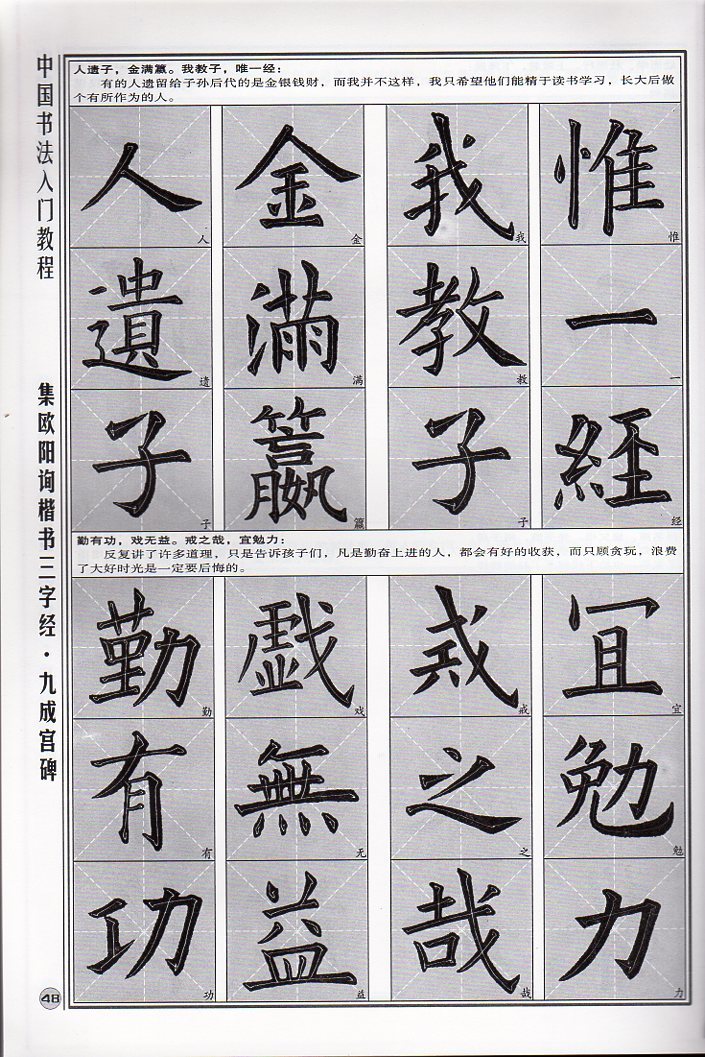 中国书法入门教程
集欧阳询楷书三字经·九成宫碑
48
人遗子，金满籯。我教子，唯一经：
有的人遗留给子孙后代的是金银钱财，而我并不这样，我只希望他们能精于读书学习，长大后做
个有所作为的人。
人遺子
人遗子
金滿籯
金满籯
我教子
我教子
惟一經
惟一经
勤有功，戏无益。戒之哉，宜勉力：
反复讲了许多道理，只是告诉孩子们，凡是勤奋上进的人，都会有好的收获，而只顾贪玩，浪费
了大好时光是一定要后悔的。
勤有功
勤有功
戲無益
戏无益
戒之哉
戒之哉
宜勉力
宜勉力